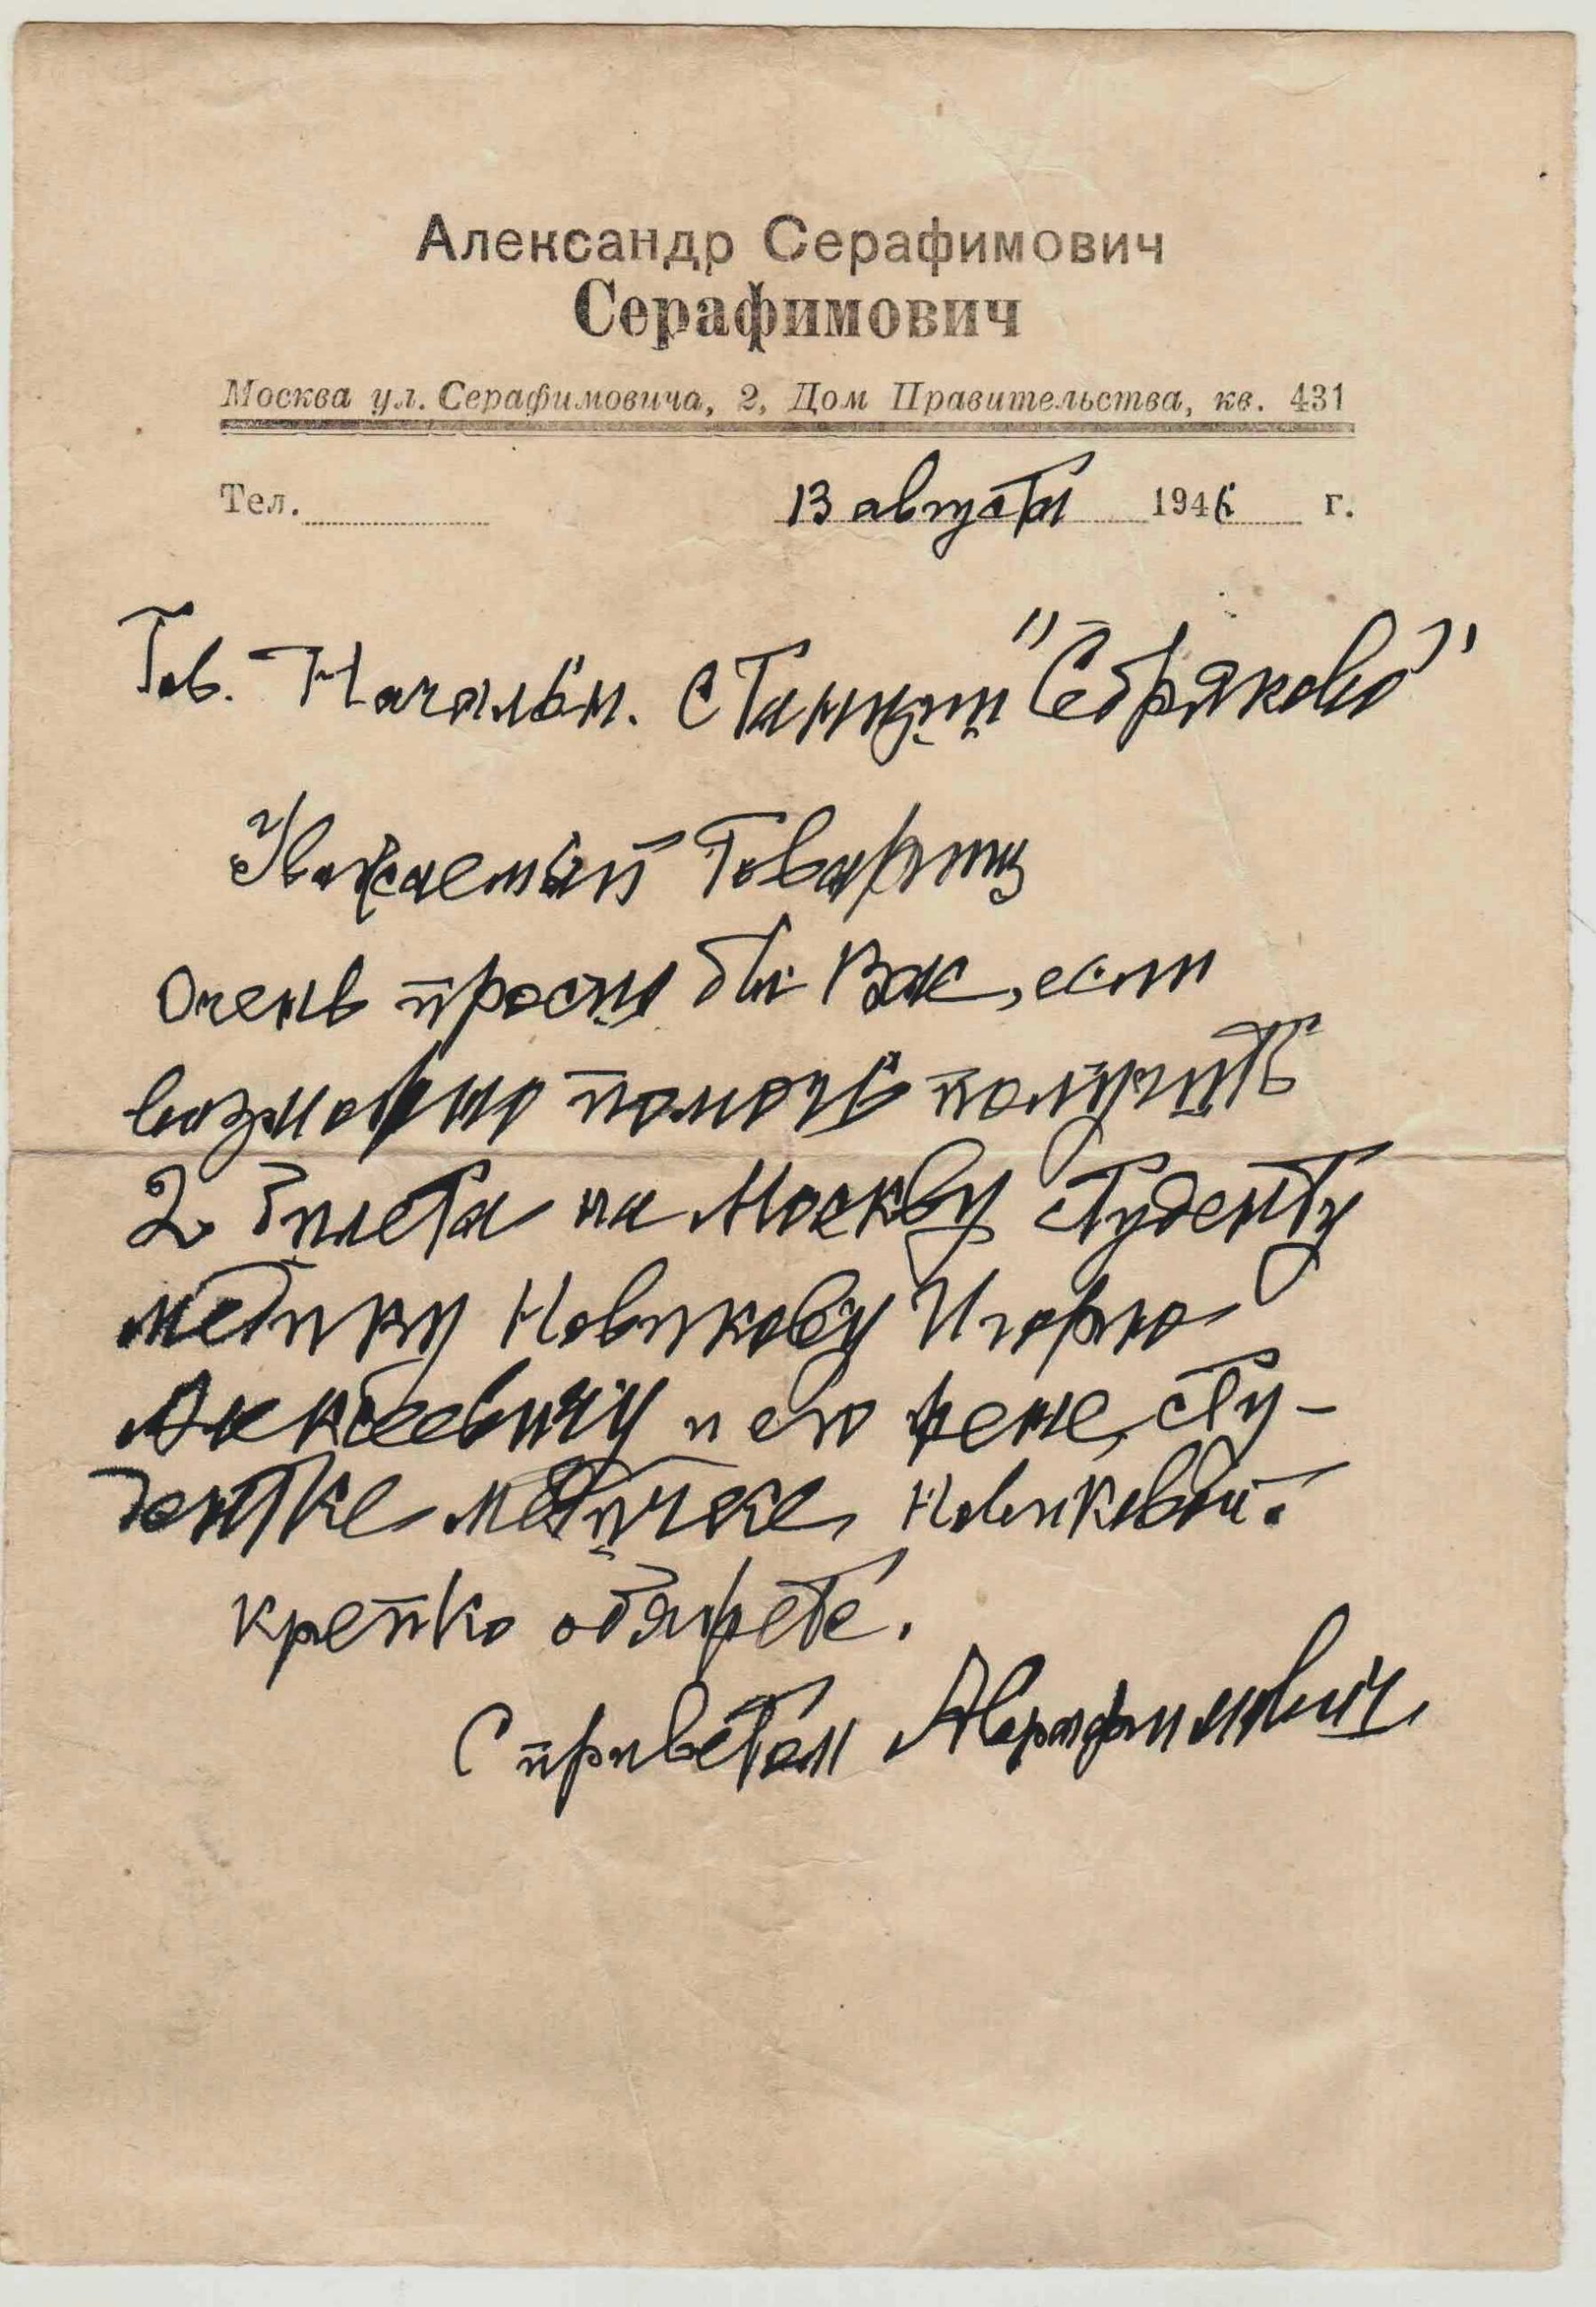 Александр Серафимович
Серафимович
Москва ул. Серафимовича, 2, Дом Правительства, кв. 431
Тел. 13 августа 1946 г.
Тов. Начальн. станции "Себряково"
Уважаемый Товарищ
Очень просил бы Вас, если
возможно помочь получить
2 билета на Москву студенту
медику Новикову Игорю
Алексеевичу и его жене, сту-
дентке медичке, Новиковой.
крепко обяжете.
С приветом АСерафимович